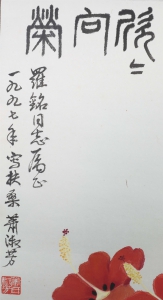 欣〻向榮
羅銘同志属正
一九九七年寫扶桑 蕭淑芳